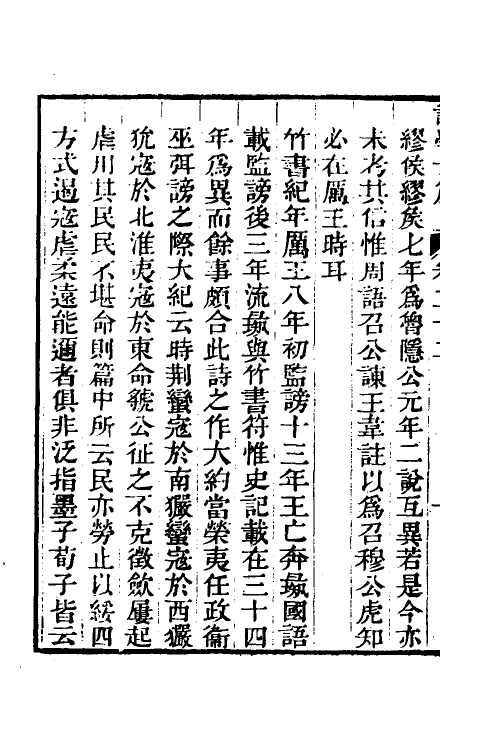 繆侯繆矦七年爲魯隱公元年二說互異若是今亦
未考其信惟周語召公諫王韋註以爲召穆公虎知
必在厲王時耳
竹書紀年厲王八年初監謗十三年王亡奔彘國語
載監謗後三年流彘與竹書符惟史記載在三十四
年爲異而餘事頗合此詩之作大約當榮夷任政衞
巫弭謗之際大紀云時荆蠻寇於南玁蠻寇於西玁
狁寇於北淮夷寇於東命虢公征之不克徵斂屢起
虐用其民民不堪命則篇中所云民亦勞止以綏四
方式遏寇虐柔遠能邇者俱非泛指墨子荀子皆云